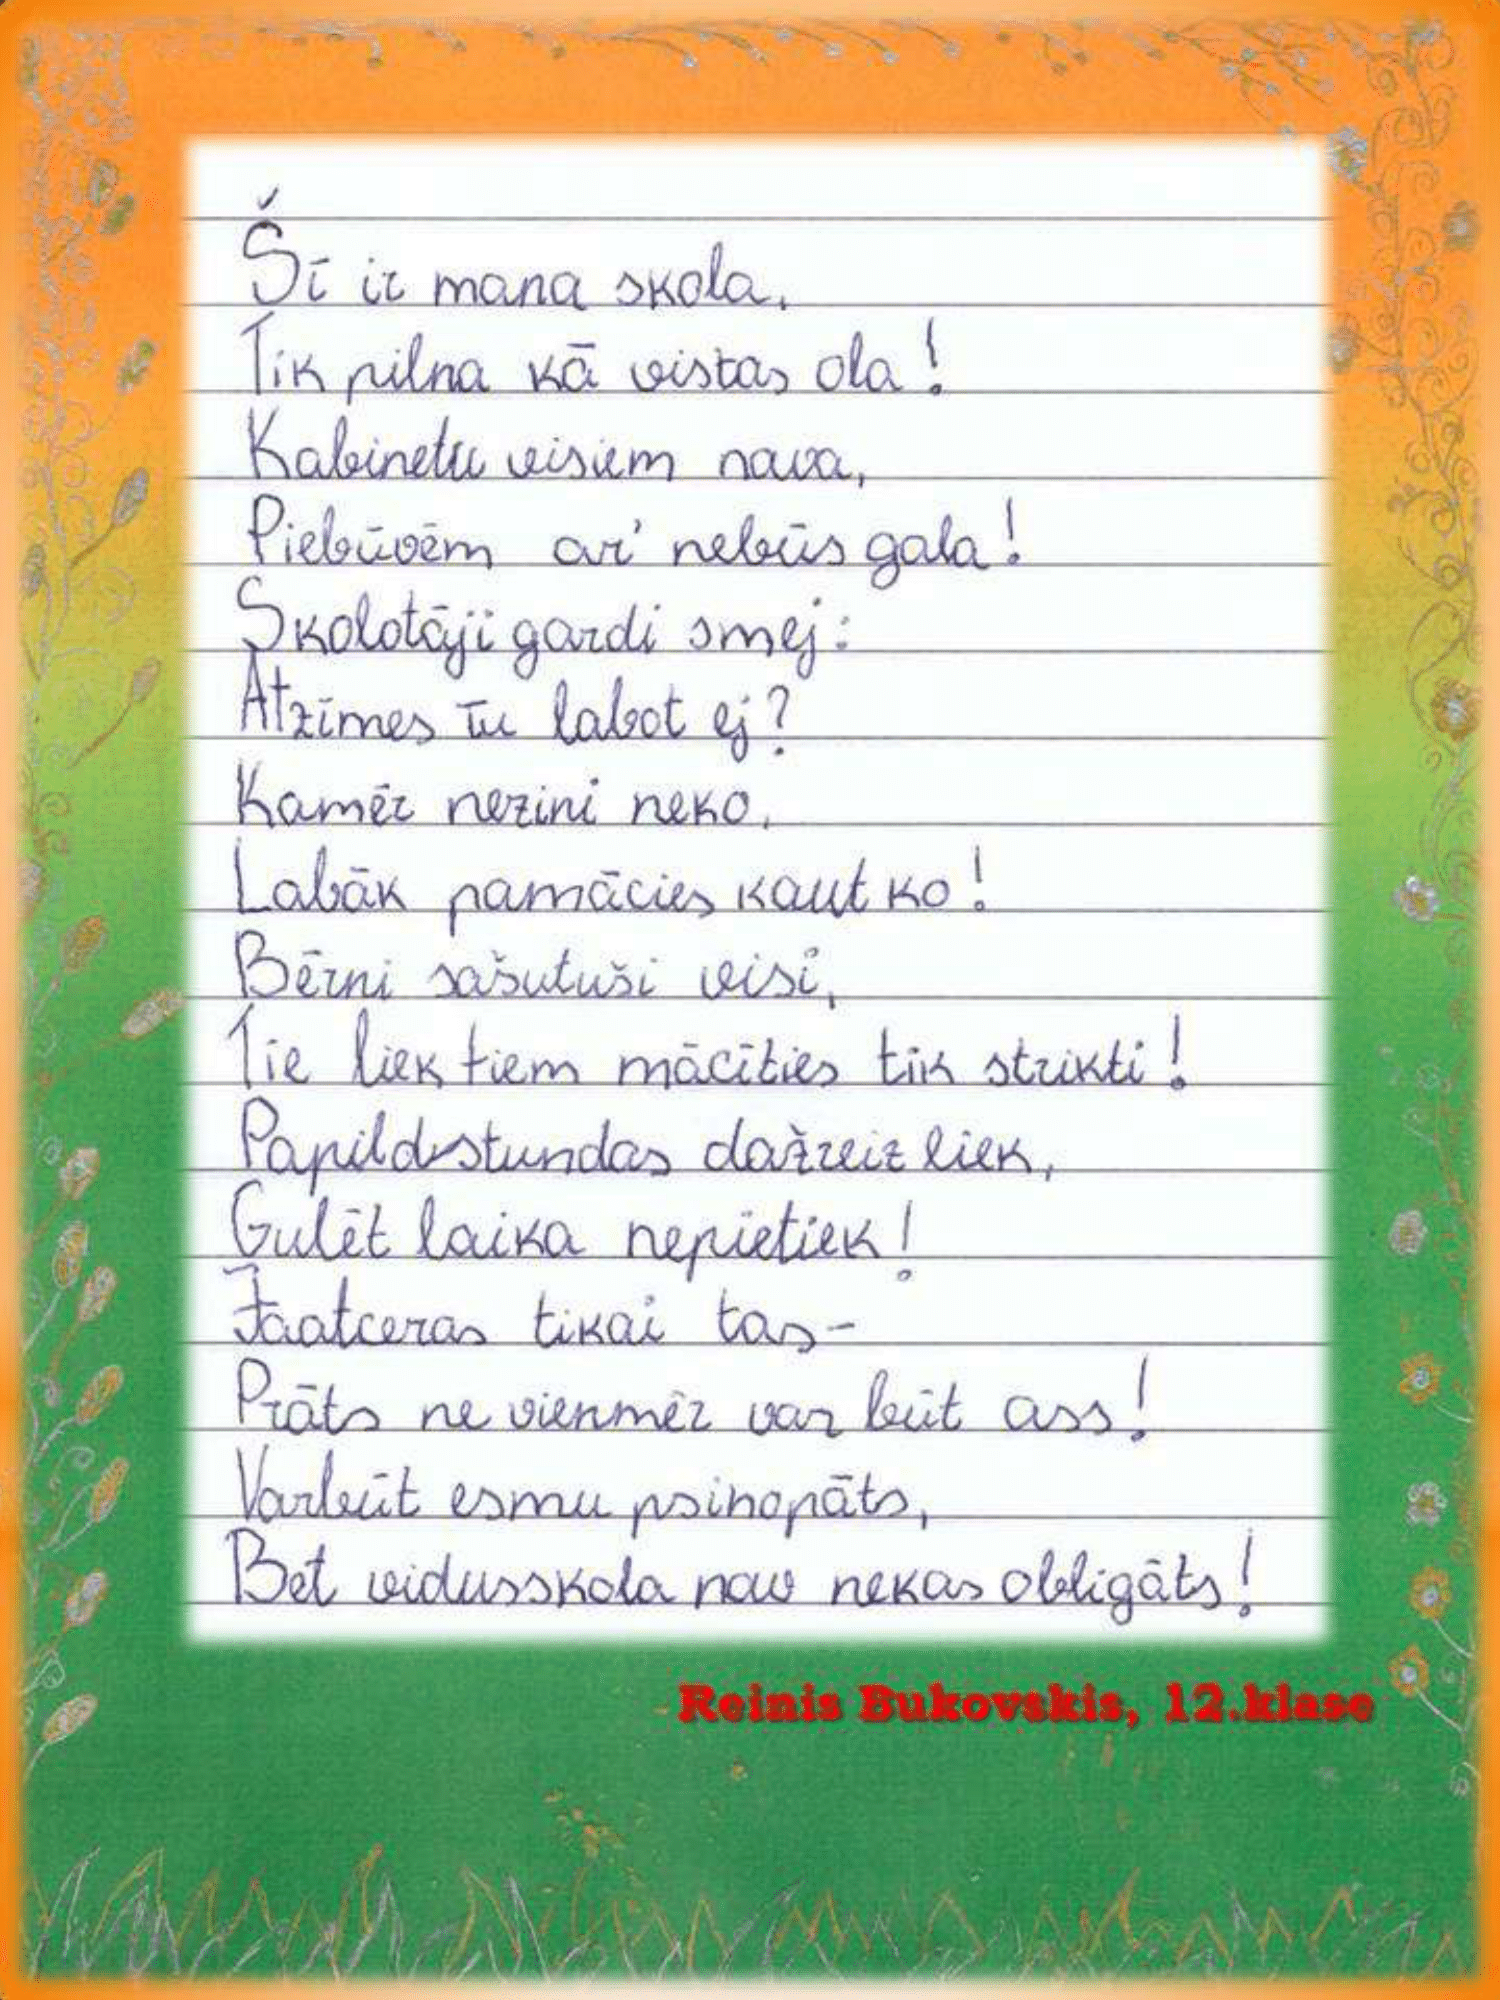 Šī ir mana skola,
Tik pilna kā vistas ola!
Kabinetu visiem nava,
Piebūvēm ar' nebūs gala!
Skolotāji gardi smej:
Atzīmes tu labot ej?
Kamēr nezini neko,
Labāk pamācies kaut ko!
Bērni sašutuši visi,
Tie liek tiem mācīties tik strikti!
Papildstundas dažreiz liek,
Gulēt laika nepietiek!
Jāatceras tikai tas-
Prāts ne vienmēr var būt ass!
Varbūt esmu psihopāts,
Bet vidusskola nav nekas obligāts!
Reinis Bukovskis, 12.klase